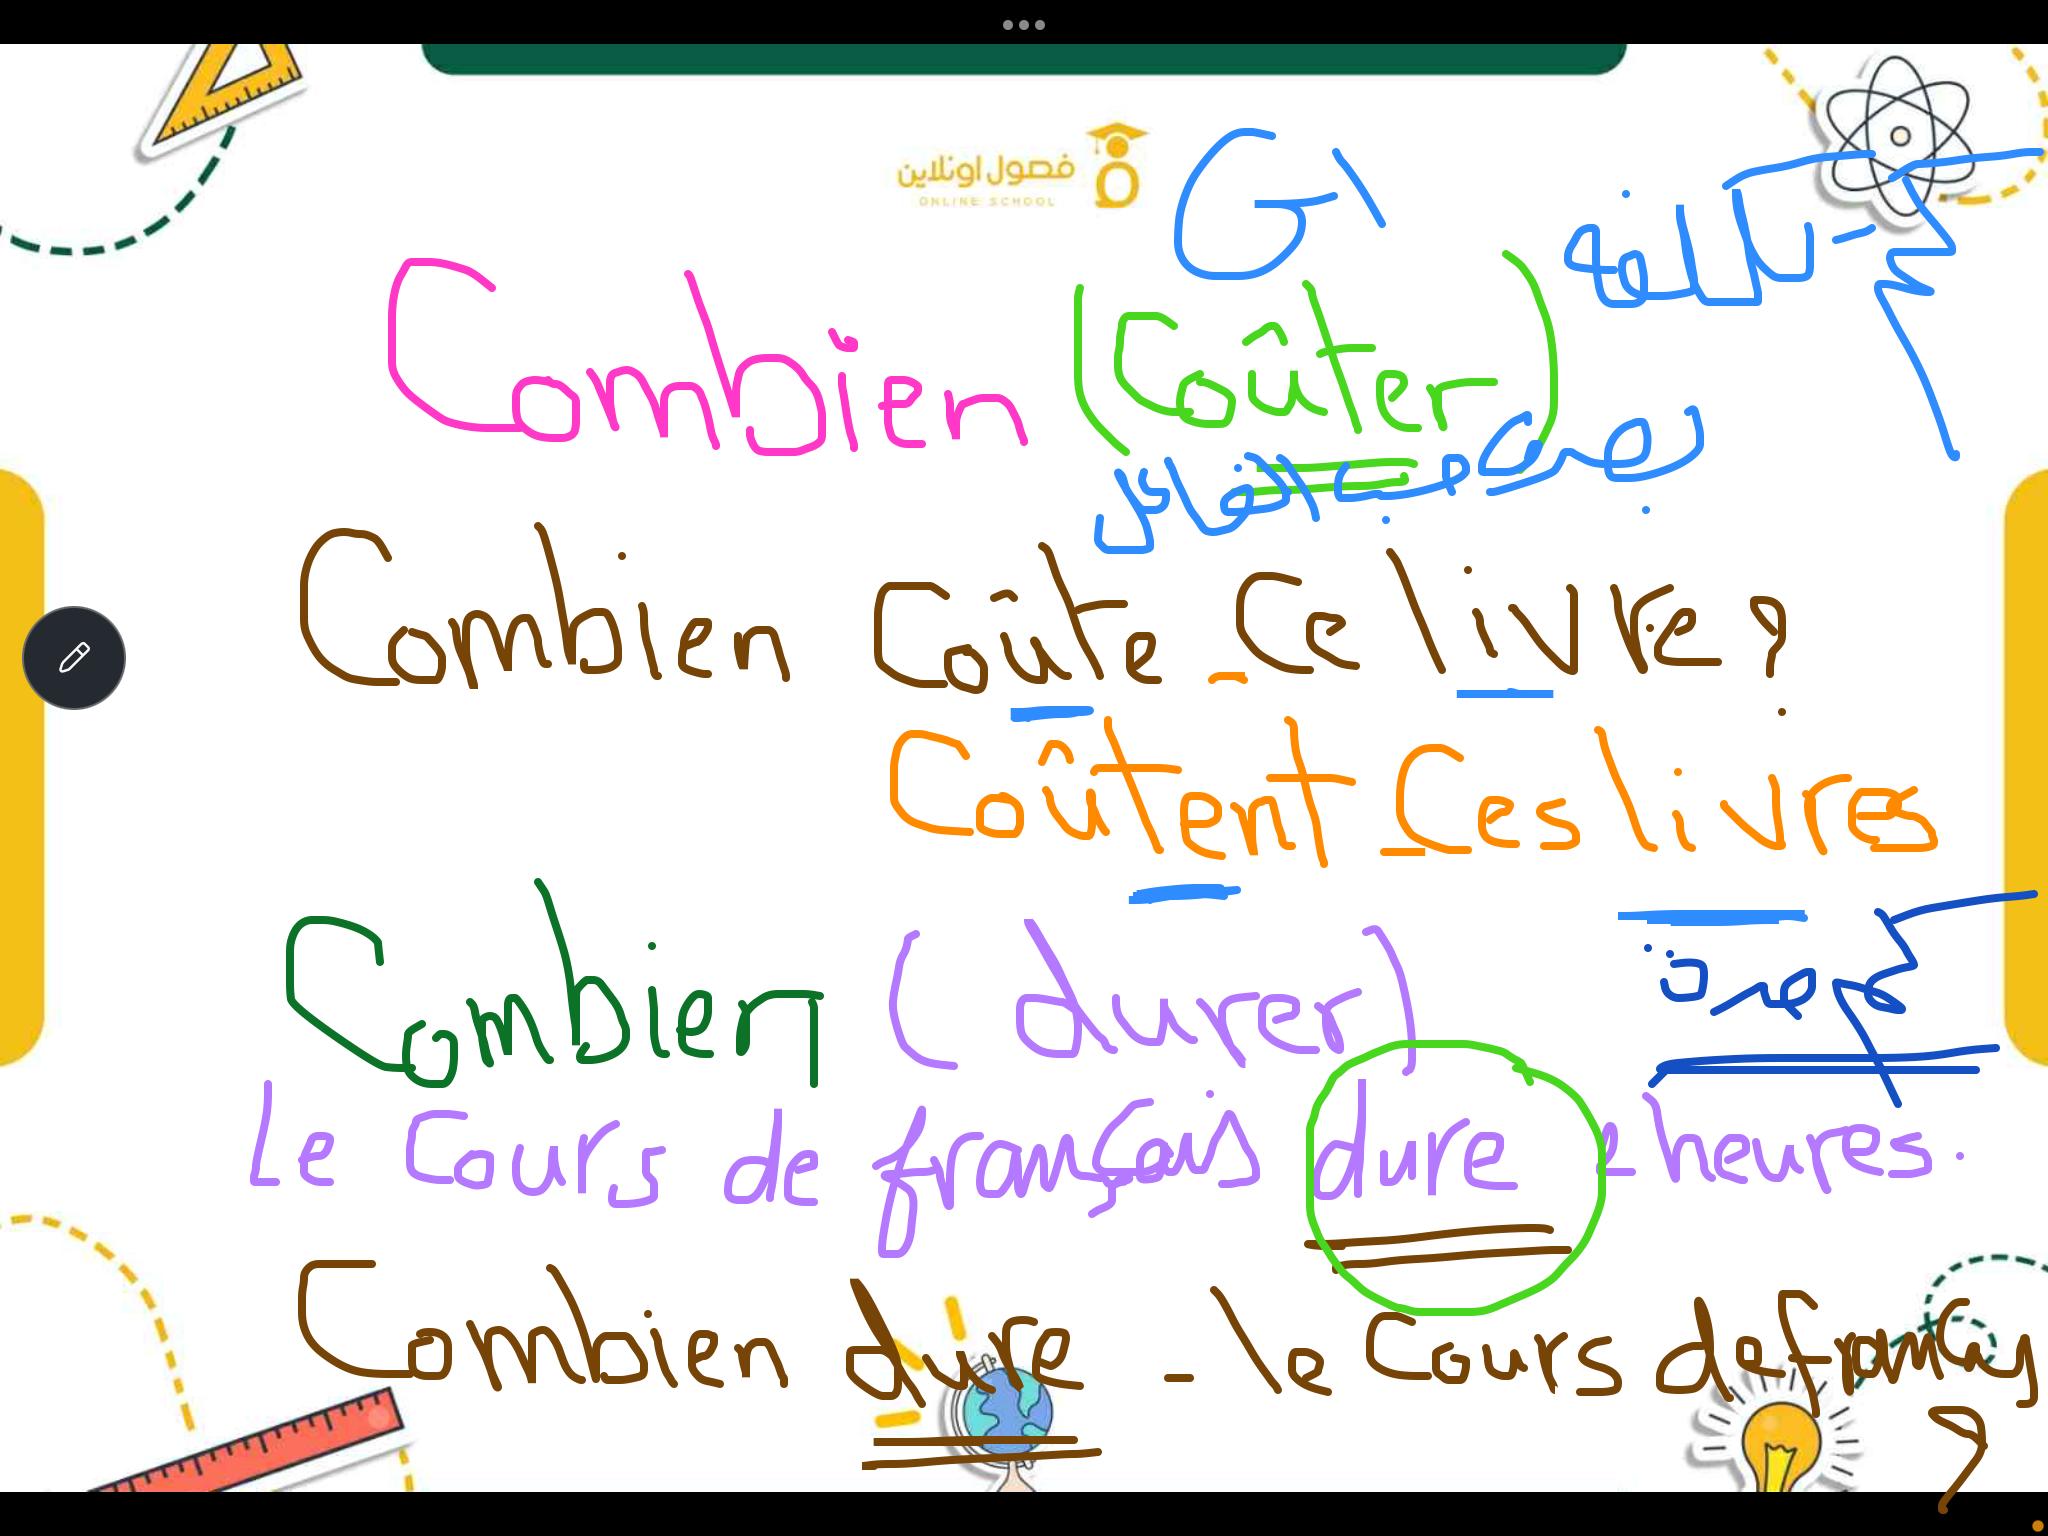 فصول اونلاين
ONLINE SCHOOL
G1
تكلفة
Combien (Coûter)
يصرف حسب الفاعل
Combien Coûte - Ce livre ?
Coûtent - Ces livres
Combien (durer)
مدة
Le Cours de français dure 2 heures.
Combien dure - le Cours de français ?